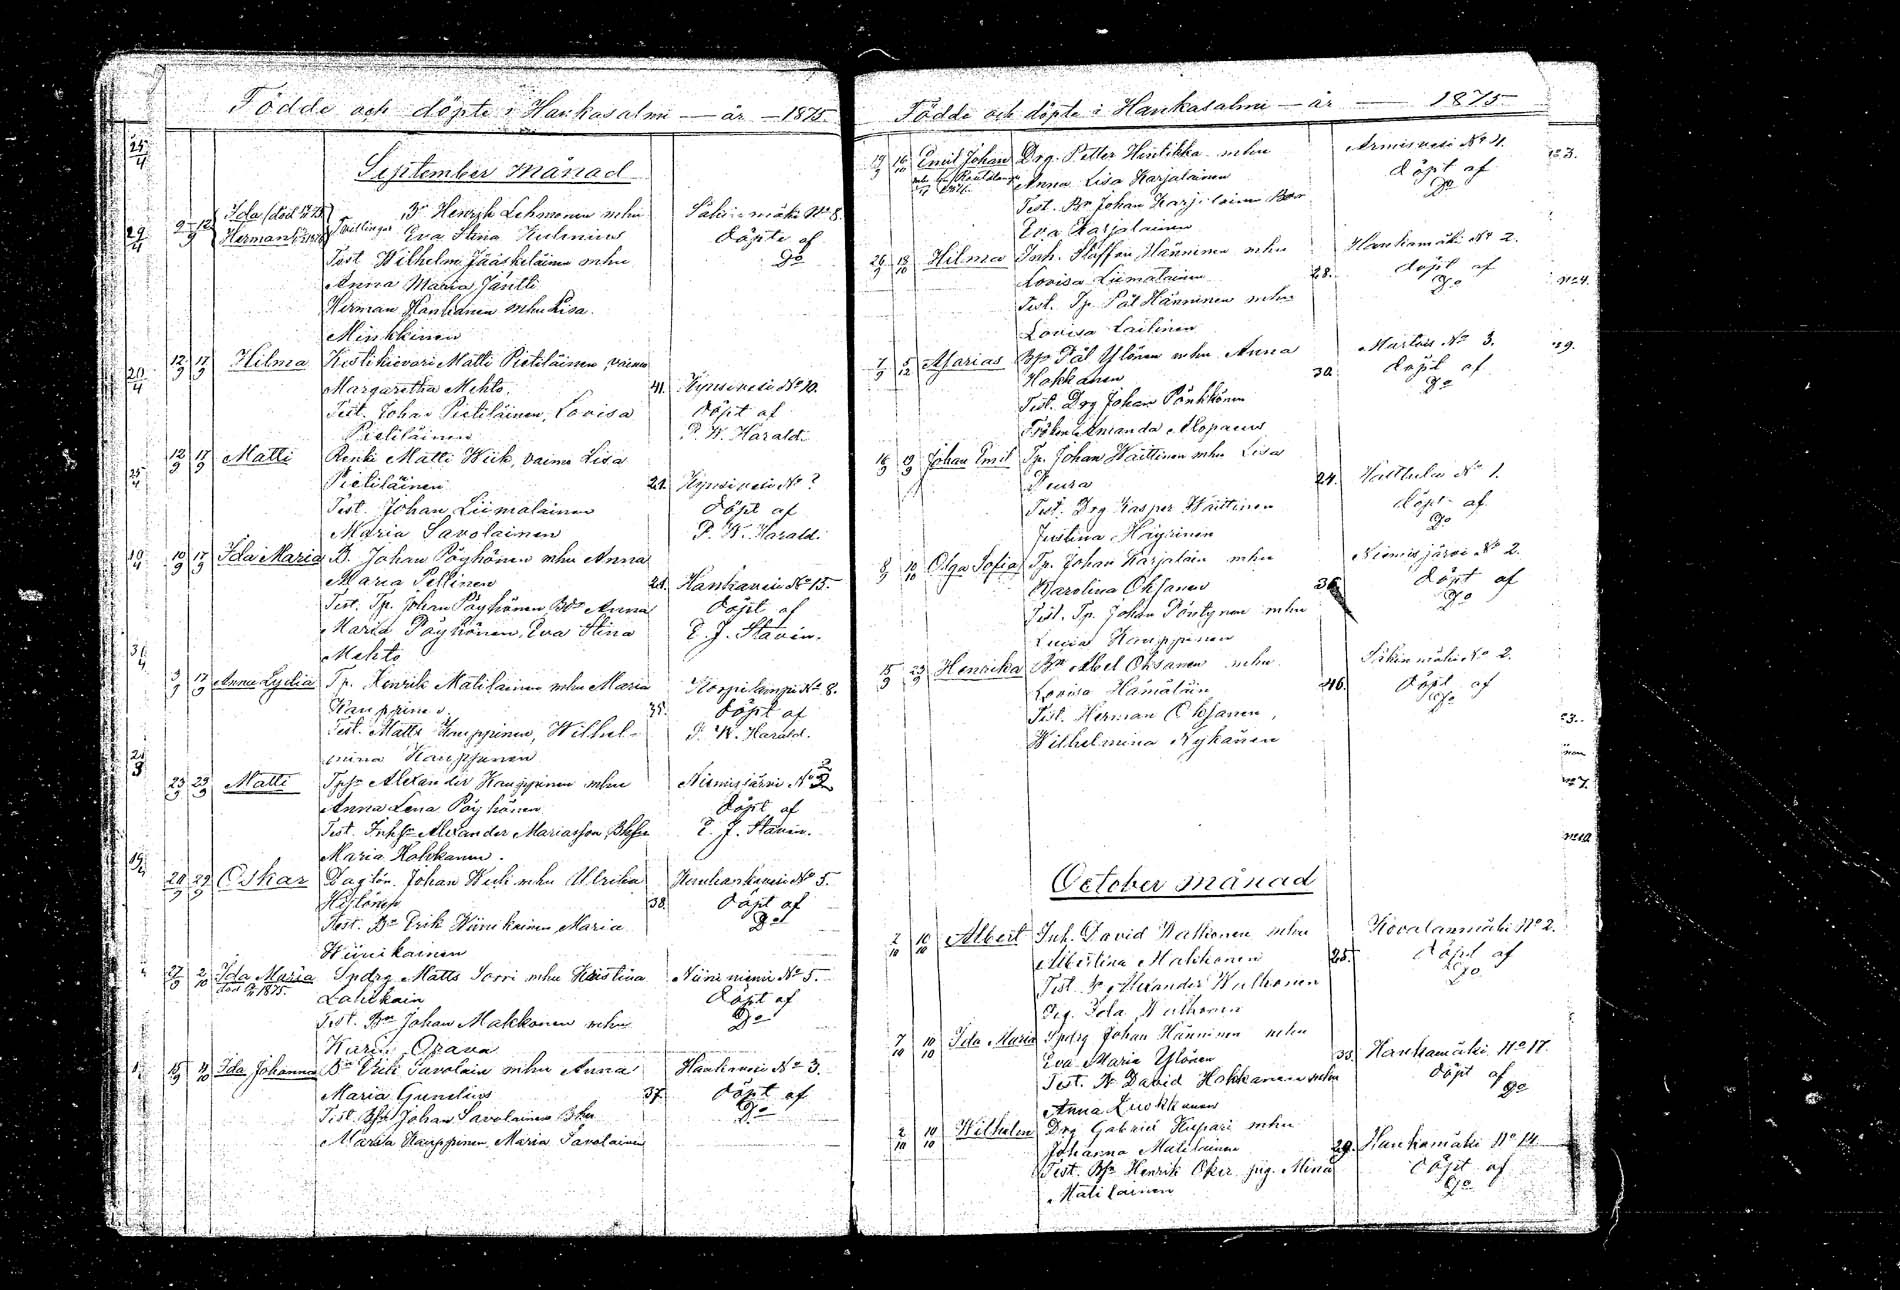 Födde och döpte i Hankasalmi — år — 1875.
September månad
9/9 12 Ida (död
Herman Tvillingar
Br Henrik Lehmonen mhu
Eva Stina Kulmius
Test Wilhelm Jääskeläinen mhu
Anna Maria Jäntti
Herman Hankanen mhu Lisa
Minkkinen
Säkinmäki No 8.
döpte af
Do
12/9 17/9 Hilma
Kestikievari Matti Pietiläinen, vaimo
Margaretha Mehto. 41.
Test. Johan Pietiläinen, Lovisa
Pietiläinen
Kynsivesi No 10.
döpt af
P. W. Harald.
12/9 17/9 Matti
Renki Matti Wiik, vaimo Lisa
Pietiläinen
Test. Johan Liimatainen
Maria Savolainen
Kynsivesi No ?
döpt af
P. W. Harald.
10/9 17/9 Ida Maria
B. Johan Pöyhönen mhu Anna
Maria Pellinen
Test. Tp. Johan Pöyhönen Anna
Maria Pöyhönen, Eva Stina
Mehto
Hankavesi No 15.
döpt af
E. J. Stavén.
3/9 17/9 Anna Lydia
Tp. Henrik Matilainen mhu Maria
Kauppinen 35.
Test. Matts Kauppinen, Wilhel-
mina Kauppinen
Korpilampi No 8.
döpt af
P. W. Harald.
23/9 29/9 Matti
Alexander Kauppinen mhu
Anna Lena Pöyhönen
Test. Alexander Mariasson
Maria Hokkanen.
Niemisjärvi No 2
döpt af
E. J. Stavén.
20/9 29/9 Oskar
Daglön. Johan Wiik mhu Ulrika
38.
Test. Bn Erik Wiinikainen, Maria
Wiinikainen
Hankavesi No 5.
döpt af
Do
27/9 2/10 Ida Maria
död 1875.
Spdrg Matts Sorri mhu Kristina
Test. Bn Johan Makkonen mhu
Karin Orava
Niinimäki No 5.
döpt af
Do
15/9 4/10 Ida Johanna
Bn Erik Savolain mhu Anna
Maria Gunelius 37
Test. Johan Savolainen
Maria Kauppinen, Maria Savolainen
Hankavesi No 3.
döpt af
Do
Födde och döpte i Hankasalmi — år — 1875
19/9 16/10 Emil Johan
Drg. Petter Hintikka mhu
Anna Lisa Karjalainen
Test. Bn Johan Karjalainen
Eva Karjalainen
Armisvesi No 4.
döpt af
Do
26/9 18/10 Hilma
Inh. Staffan Hänninen mhu
Lovisa Liimatainen 28.
Test. Tp. Pål Hänninen mhu
Lovisa Laitinen
Hankamäki No 2.
döpt af
Do
7/9 5/12 Asarias
Pål Ylönen mhu Anna
Hokkanen 30.
Test. Drg Johan Pönkkönen
Fröken Amanda Alopaeus
Murtois No 3.
döpt af
Do
16/9 19/9 Johan Emil
Tp. Johan Waittinen mhu Lisa
Peura 24.
Test. Drg Kasper Waittinen
Justina Häyrinen
No 1.
döpt af
Do
8/9 10/10 Olga Sofia
Tp. Johan Karjalain mhu
Karolina Oksanen 36
Test. Tp. Johan Pöntynen mhu
Lucia Kauppinen
Niemisjärvi No 2.
döpt af
Do
15/9 23/9 Henrika
Bn Abel Oksanen mhu
Lovisa Hämäläin 46.
Test. Herman Oksanen,
Wilhelmina Nykänen
Säkinmäki No 2.
döpt af
Do
October månad
2/10 10/10 Albert
Inh. David Walkonen mhu
Albertina Makkonen 25.
Test. Alexander Walkonen
Ida Walkonen
Kovalanmäki No 2.
döpt af
Do
7/10 10/10 Ida Maria
Spdrg Johan Hänninen mhu
Eva Maria Ylönen 33.
Test. David Hokkanen mhu
Anna
Hankamäki No 17.
döpt af
Do
2/10 10/10 Wilhelm
Drg Gabriel Kupari mhu
Johanna Matilainen 29.
Test. Henrik Oker pig. Mina
Matilainen
Hankamäki No 14
döpt af
Do